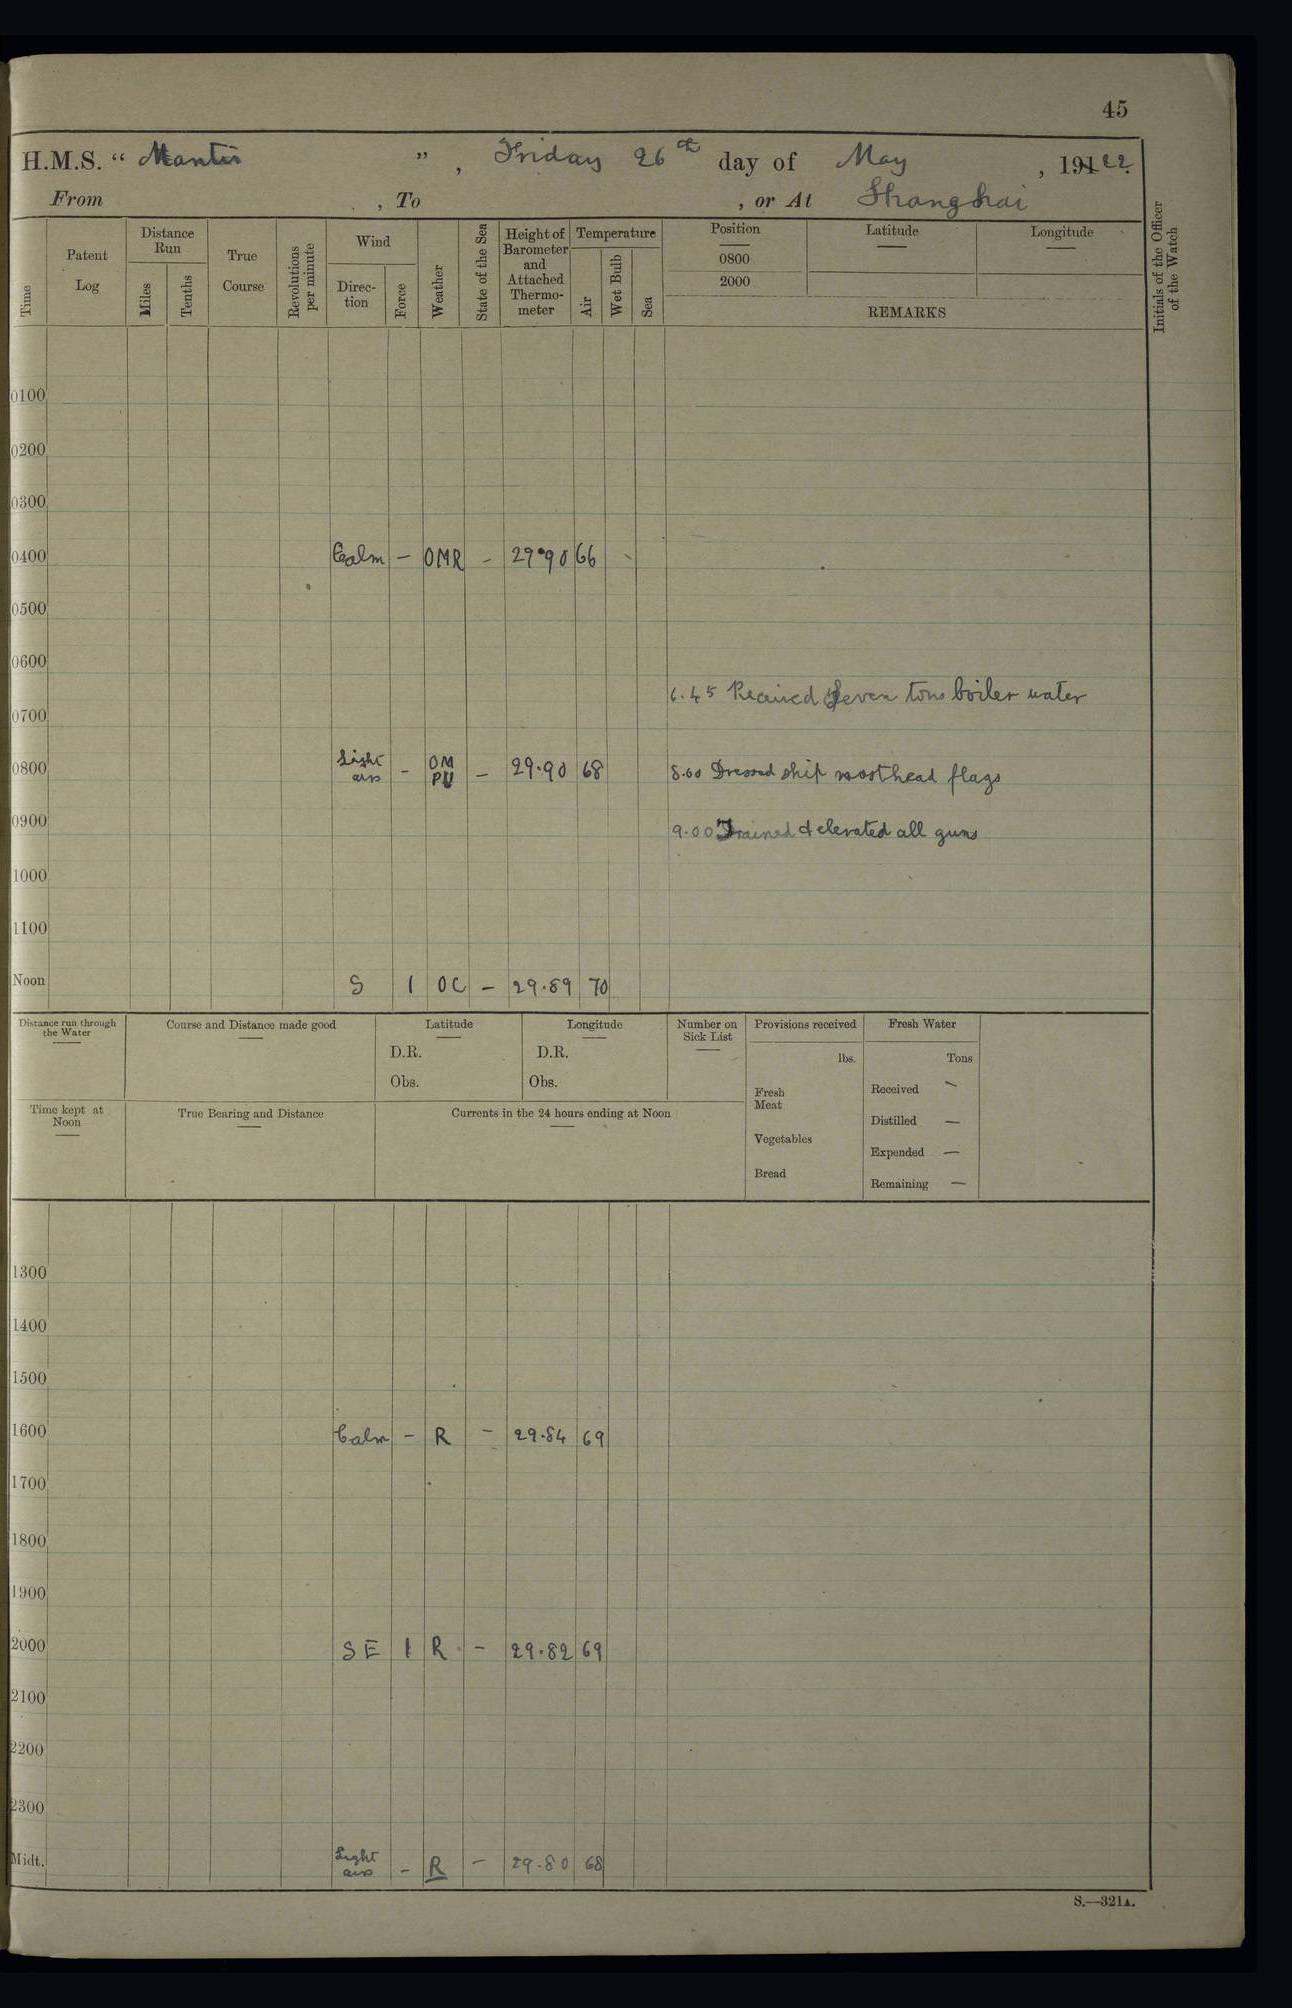 45
H.M.S. “ Mantis ” , Friday 26th day of May , 19122.
From , To , or At Shanghai
Time
Patent Log
Distance Run
Miles
Tenths
True Course
Revolutions per minute
Wind
Direc-tion
Force
Weather
State of the Sea
Height of Barometer and Attached Thermo-meter
Temperature
Air
Wet Bulb
Sea
Position
0800
2000
Latitude
Longitude
REMARKS
Initials of the Officer of the Watch
0100
0200
0300
0400 Calm – OMR – 29.90 66
0500
0600
6.45 Received Seven tons boiler water
0700
0800 Light airs – OM PU – 29.90 68 8.00 Dressed ship masthead flags
0900 9.00 Trained & elevated all guns
1000
1100
Noon S 1 OC – 29.89 70
Distance run through the Water
Course and Distance made good
Latitude
D.R.
Obs.
Longitude
D.R.
Obs.
Number on Sick List
Provisions received
lbs.
Fresh Meat
Vegetables
Bread
Fresh Water
Tons
Received –
Distilled –
Expended –
Remaining –
Time kept at Noon
True Bearing and Distance
Currents in the 24 hours ending at Noon
1300
1400
1500
1600 Calm – R – 29.84 69
1700
1800
1900
2000 SE 1 R – 29.82 69
2100
2200
2300
Midt. Light airs – R – 29.80 68
S.—321A.